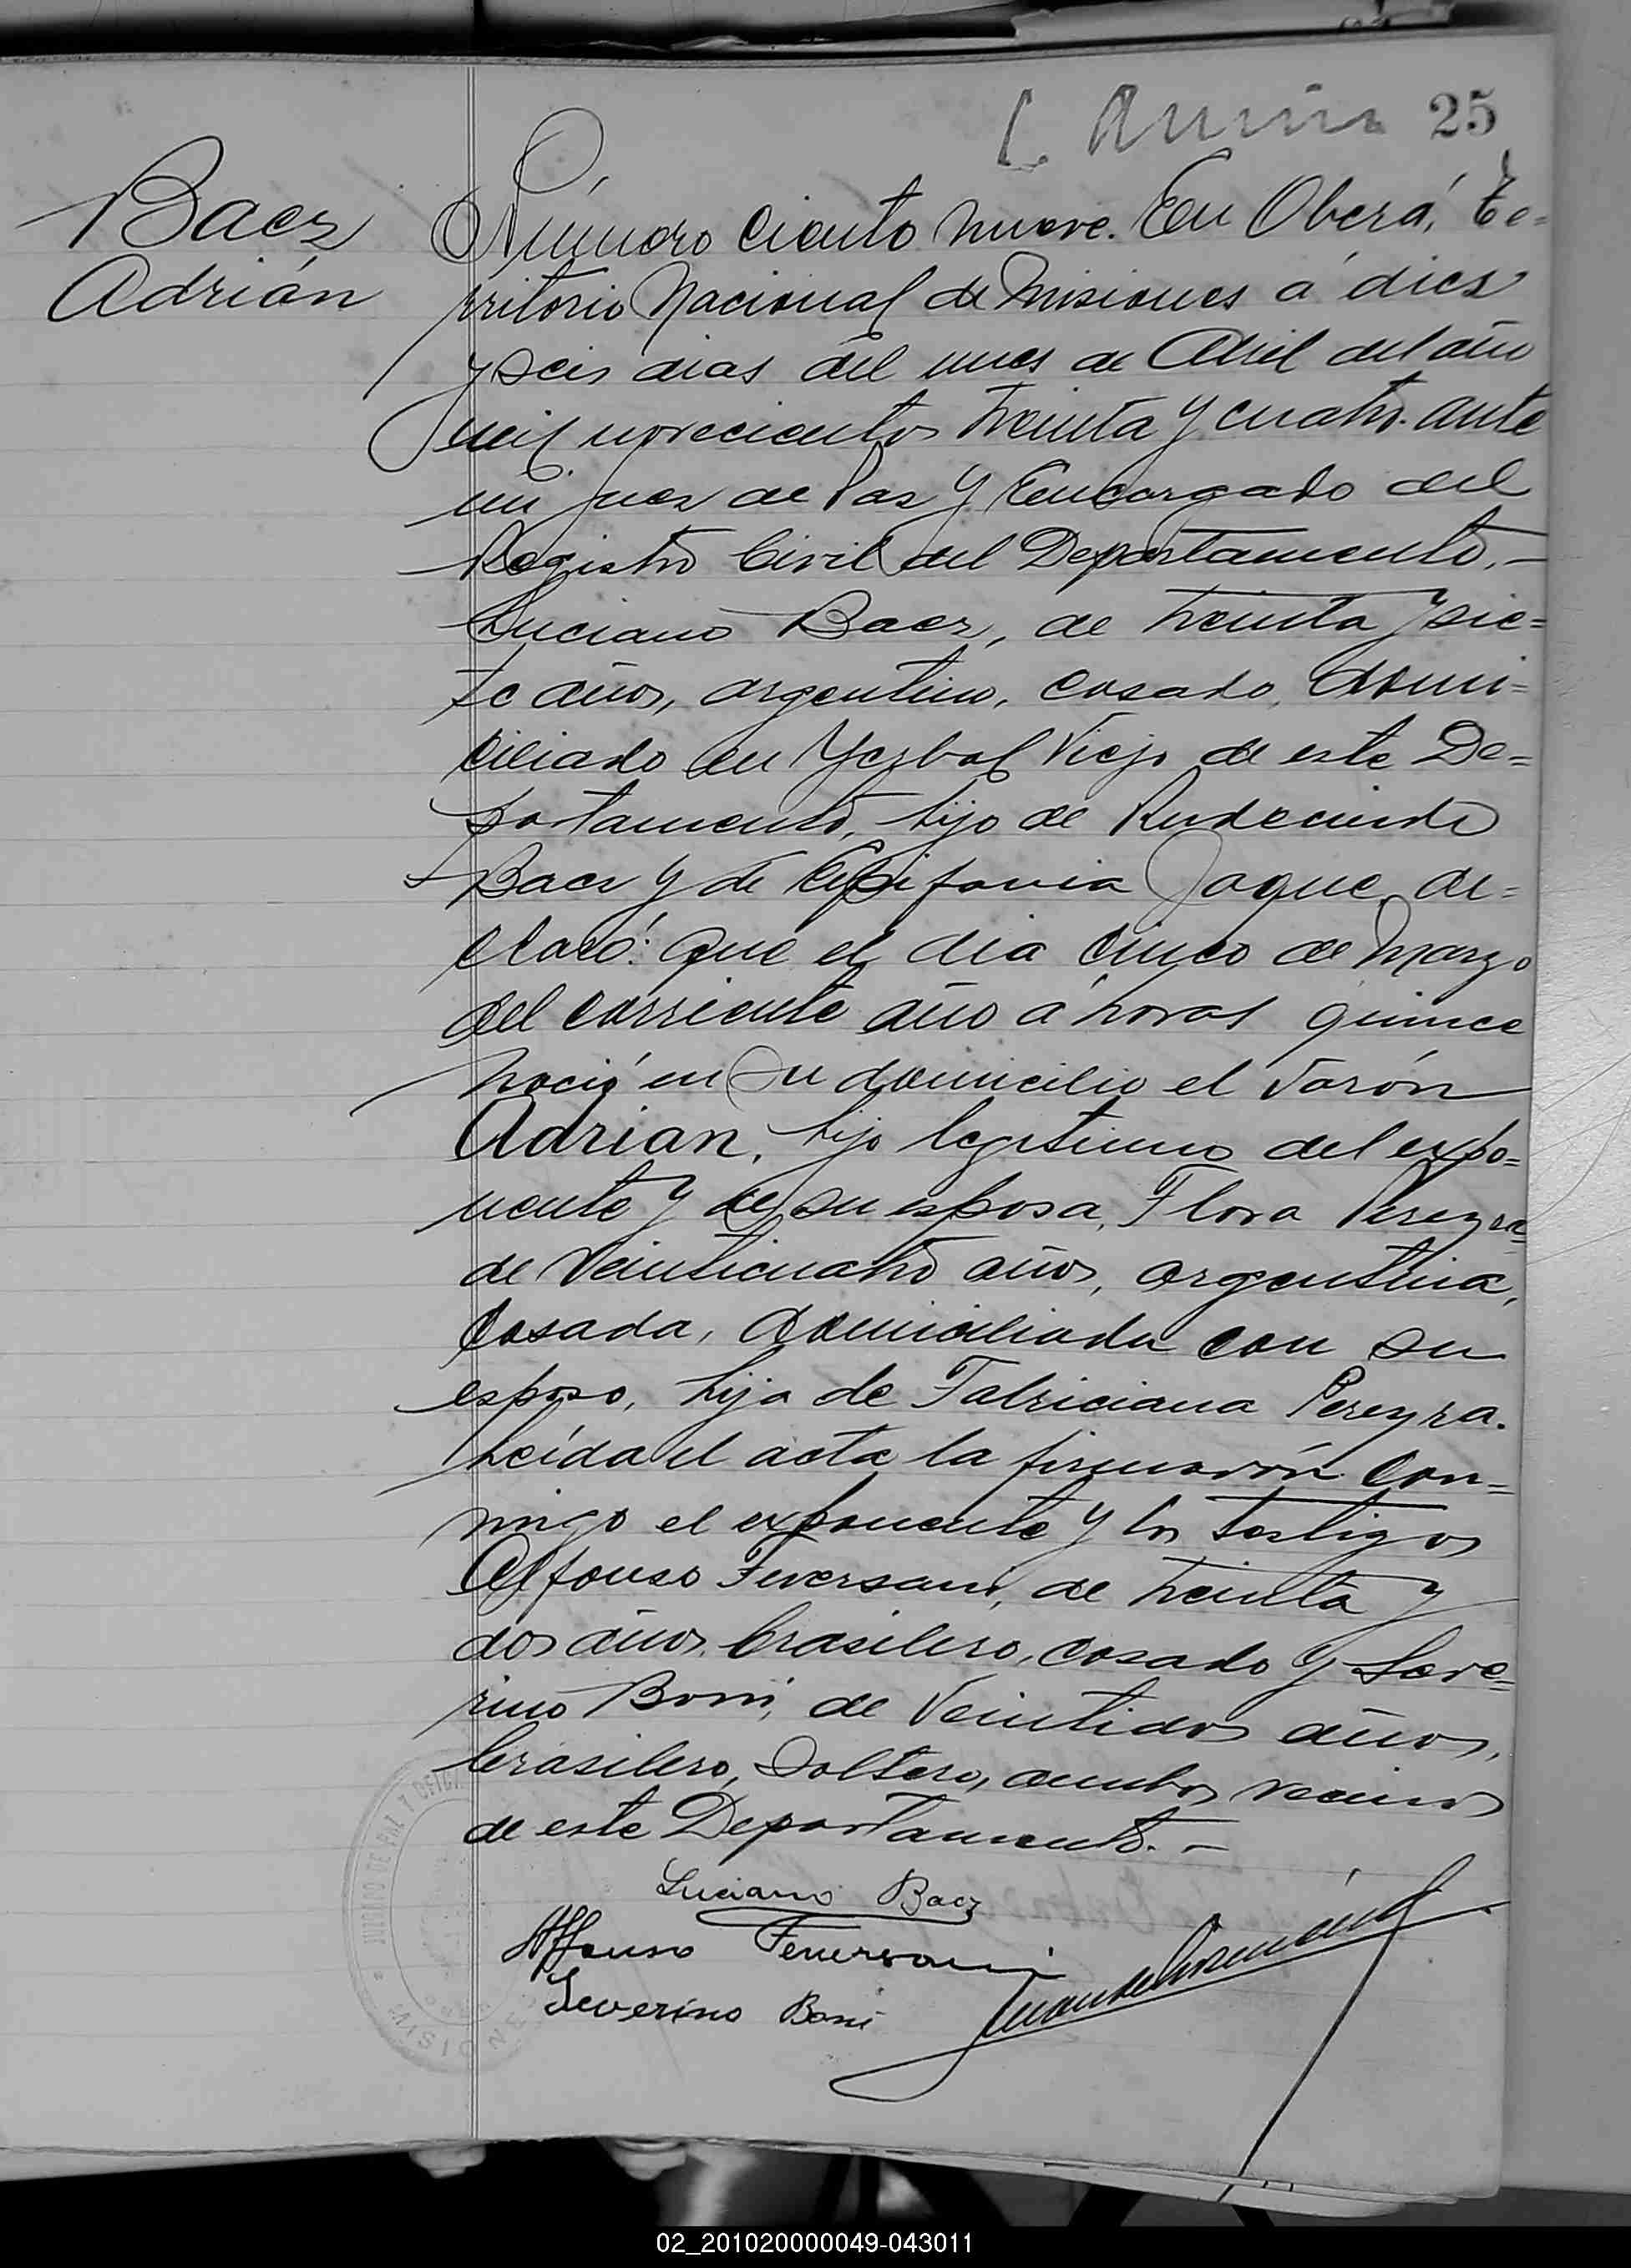 25
Baez
Adrián
Número ciento nueve. En Oberá, Te=
rritorio Nacional de Misiones á diez
y seis dias del mes de Abril del año
mil novecientos treinta y cuatro. ante
mi Juez de Paz y Encargado del
Registro Civil del Departamento.-
Luciano Baez, de treinta y sie=
te años, argentino, casado, domi=
ciliado en Yerbal Viejo de este De=
partamento, hijo de Rudecindo
Baez y de Epifania Jaque, de=
claró: que el dia cinco de Marzo
del corriente año á horas quince
nació en su domicilio el varón
Adrian, hijo legitimo del expo=
nente y de su esposa, Flora Pereyra=
de veinticuatro años, argentina,
casada, domiciliada con su
esposo, hija de Fabriciana Pereyra.
Leída el acta la firmarón con=
migo el exponente y los testigos
Alfonso Feversani, de treinta y
dos años, brasilero, casado y Seve=
rino Boni, de veintidos años,
brasilero, soltero, ambos vecinos
de este Departamento.-
Luciano Baez
Affonso Feversani
Severino Boni
JUZGADO DE PAZ Y OFICI
02_201020000049-043011